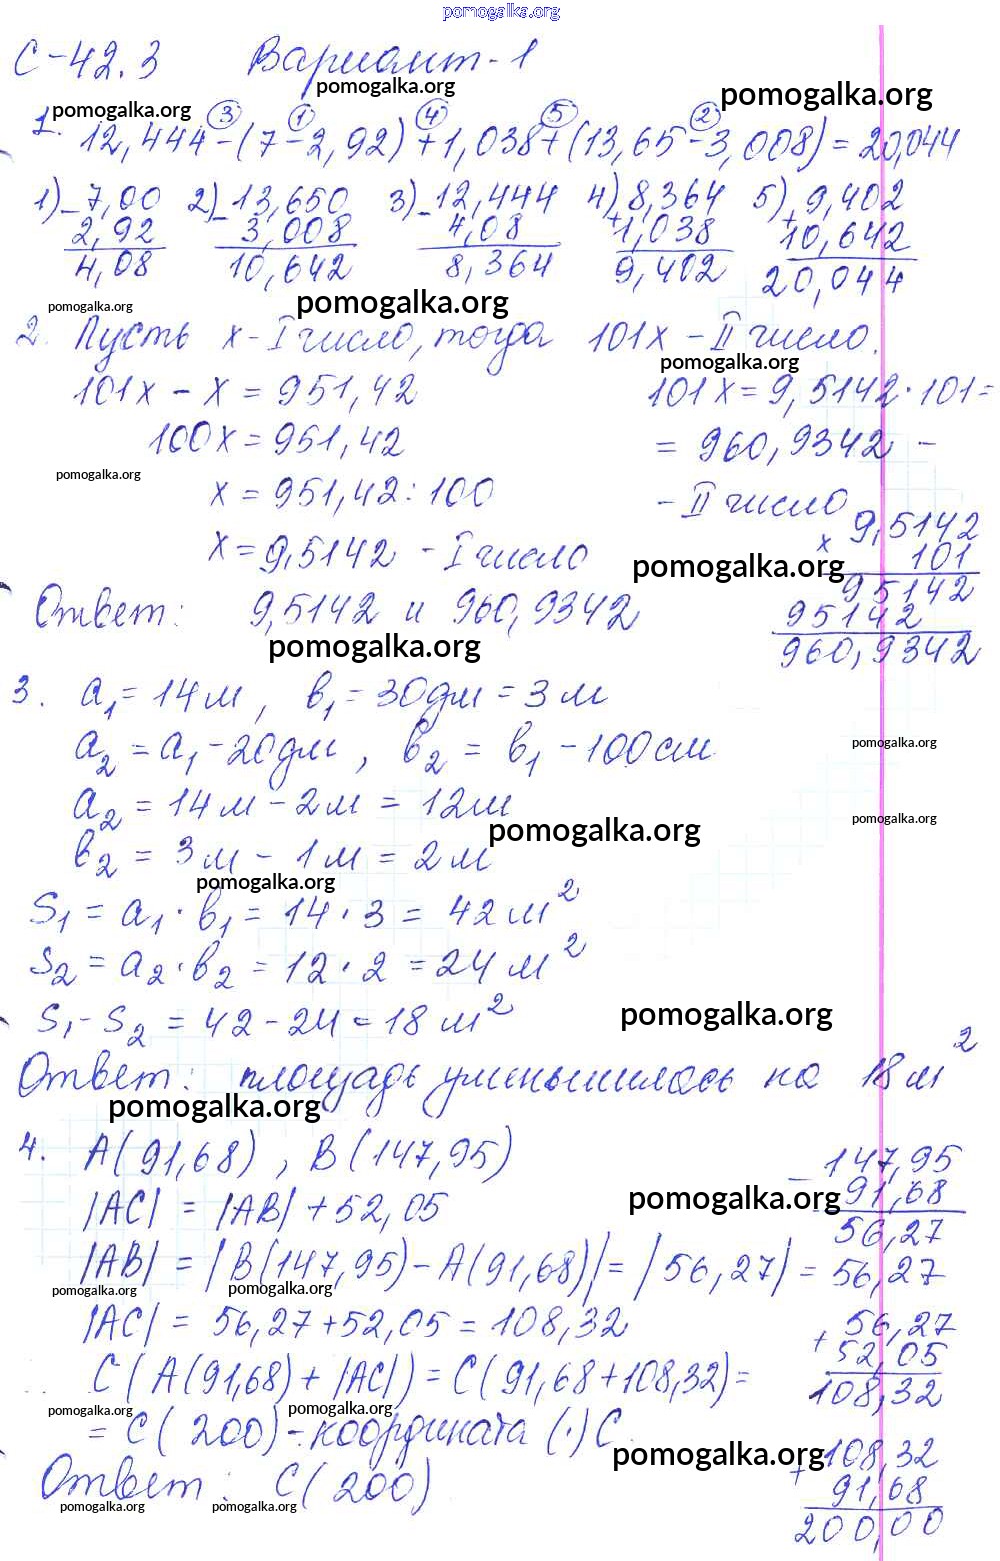 pomogalka.org
С-42.3 Вариант-1
pomogalka.org pomogalka.org pomogalka.org
③ ① ④ ⑤ ②
1. 12,444-(7-2,92)+1,038+(13,65-3,008)=20,044
1) 7,00 2) 13,650 3) 12,444 4) 8,364 5) 9,402
- 2,92 - 3,008 - 4,08 + 1,038 + 10,642
4,08 10,642 8,364 9,402 20,044
pomogalka.org pomogalka.org
2. Пусть x-I число, тогда 101x-II число.
pomogalka.org
101x - x = 951,42 101x = 9,5142·101=
100x = 951,42 = 960,9342 -
pomogalka.org
x = 951,42:100 - II число
x = 9,5142 - I число
9,5142
x 101
pomogalka.org
95142
95142
960,9342
Ответ: 9,5142 и 960,9342
pomogalka.org
3. a₁ = 14м, b₁ = 30дм = 3м
a₂ = a₁ - 20дм, b₂ = b₁ - 100см
pomogalka.org
a₂ = 14м - 2м = 12м
pomogalka.org
pomogalka.org
b₂ = 3м - 1м = 2м
pomogalka.org
S₁ = a₁·b₁ = 14·3 = 42м²
S₂ = a₂·b₂ = 12·2 = 24м²
S₁-S₂ = 42-24 = 18м²
pomogalka.org
Ответ: площадь уменьшилась на 18м²
pomogalka.org
4. A(91,68), B(147,95)
147,95
- 91,68
56,27
pomogalka.org
|AC| = |AB| + 52,05
|AB| = |B(147,95) - A(91,68)| = |56,27| = 56,27
pomogalka.org pomogalka.org
|AC| = 56,27+52,05 = 108,32
56,27
+ 52,05
108,32
C(A(91,68) + |AC|) = C(91,68+108,32)=
pomogalka.org pomogalka.org
= C(200) - координата (·) C.
pomogalka.org
108,32
+ 91,68
200,00
Ответ: C(200)
pomogalka.org pomogalka.org